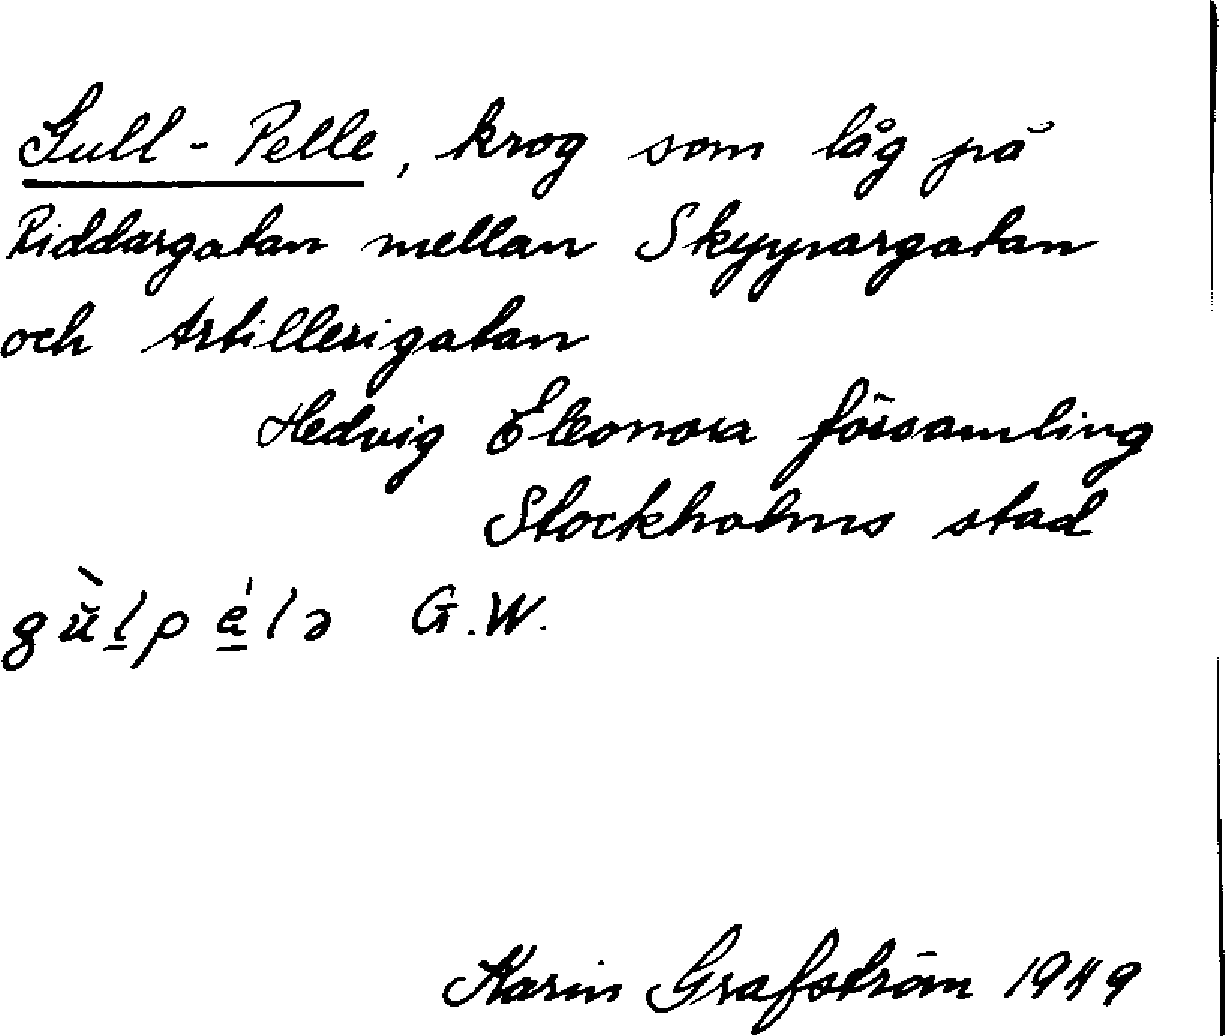 Gull-Pelle, krog som låg på
Riddargatan mellan Skyppargatan
och Artillerigatan
Hedvig Eleonora församling
Stockholms stad
G.W.
Karin Grafström 1949